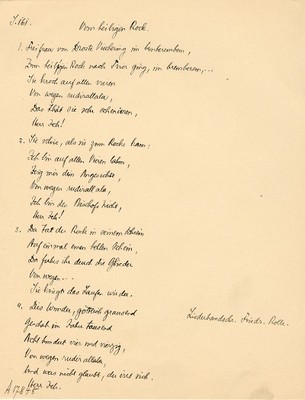 S. 161.
Vom heiligen Rock.
1. Freifrau von Droste Vischering im bumberembem,
Zum heiligen Rock nach Trier ging, im bremborem,...
Sie kroch auf allen vieren
Von wegen rudirallala,
Das thät sie sehr schenieren,
Herr Jeh!
2. Sie schrie, als sie zum Rocke kam:
Ich bin auf allen Vieren lahm,
Zeig mir dein Angesichte,
Von wegen rudirallala,
Ich bin des Bischofs Nicht,
Herr Jeh!
3. Da that der Rock in seinem Schrein
Auf einmal einen hellen Schein,
Da fuhr's ihr durch die Glieder
Von wegen...
Sie kriegt das Laufen wieder.
4. Dies Wunder, göttlich grausend
Geschah im Jahre tausend
Acht hundert vier und vierzig,
Von wegen rudirallala,
Und was nicht glaubt, der irrt sich.
Herr Jeh.
Liederhandschr. Friedr. Rolle.